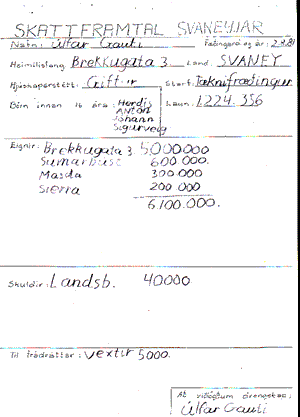 SKATTFRAMTAL SVANEYJAR
Nafn: Úlfar Gauti Fæðingard og ár: 2.4.81
Heimilisfang Brekkugata 3. Land: SVANEY
Hjúskaparstétt: Giftur Starf: Tæknifræðingur
Börn innan 16 ára: Herdís Laun: 1.224.356
ANTON
Jóhann
Sigurveig
Eignir: Brekkugata 3. 5000000
Sumarbúst 600.000.
Mazda 300.000
Sierra 200 000
6.100.000.
Skuldir: Landsb. 40000
Til frádráttar: vextir 5000.
Að viðlögðum drengskap:
Úlfar Gauti